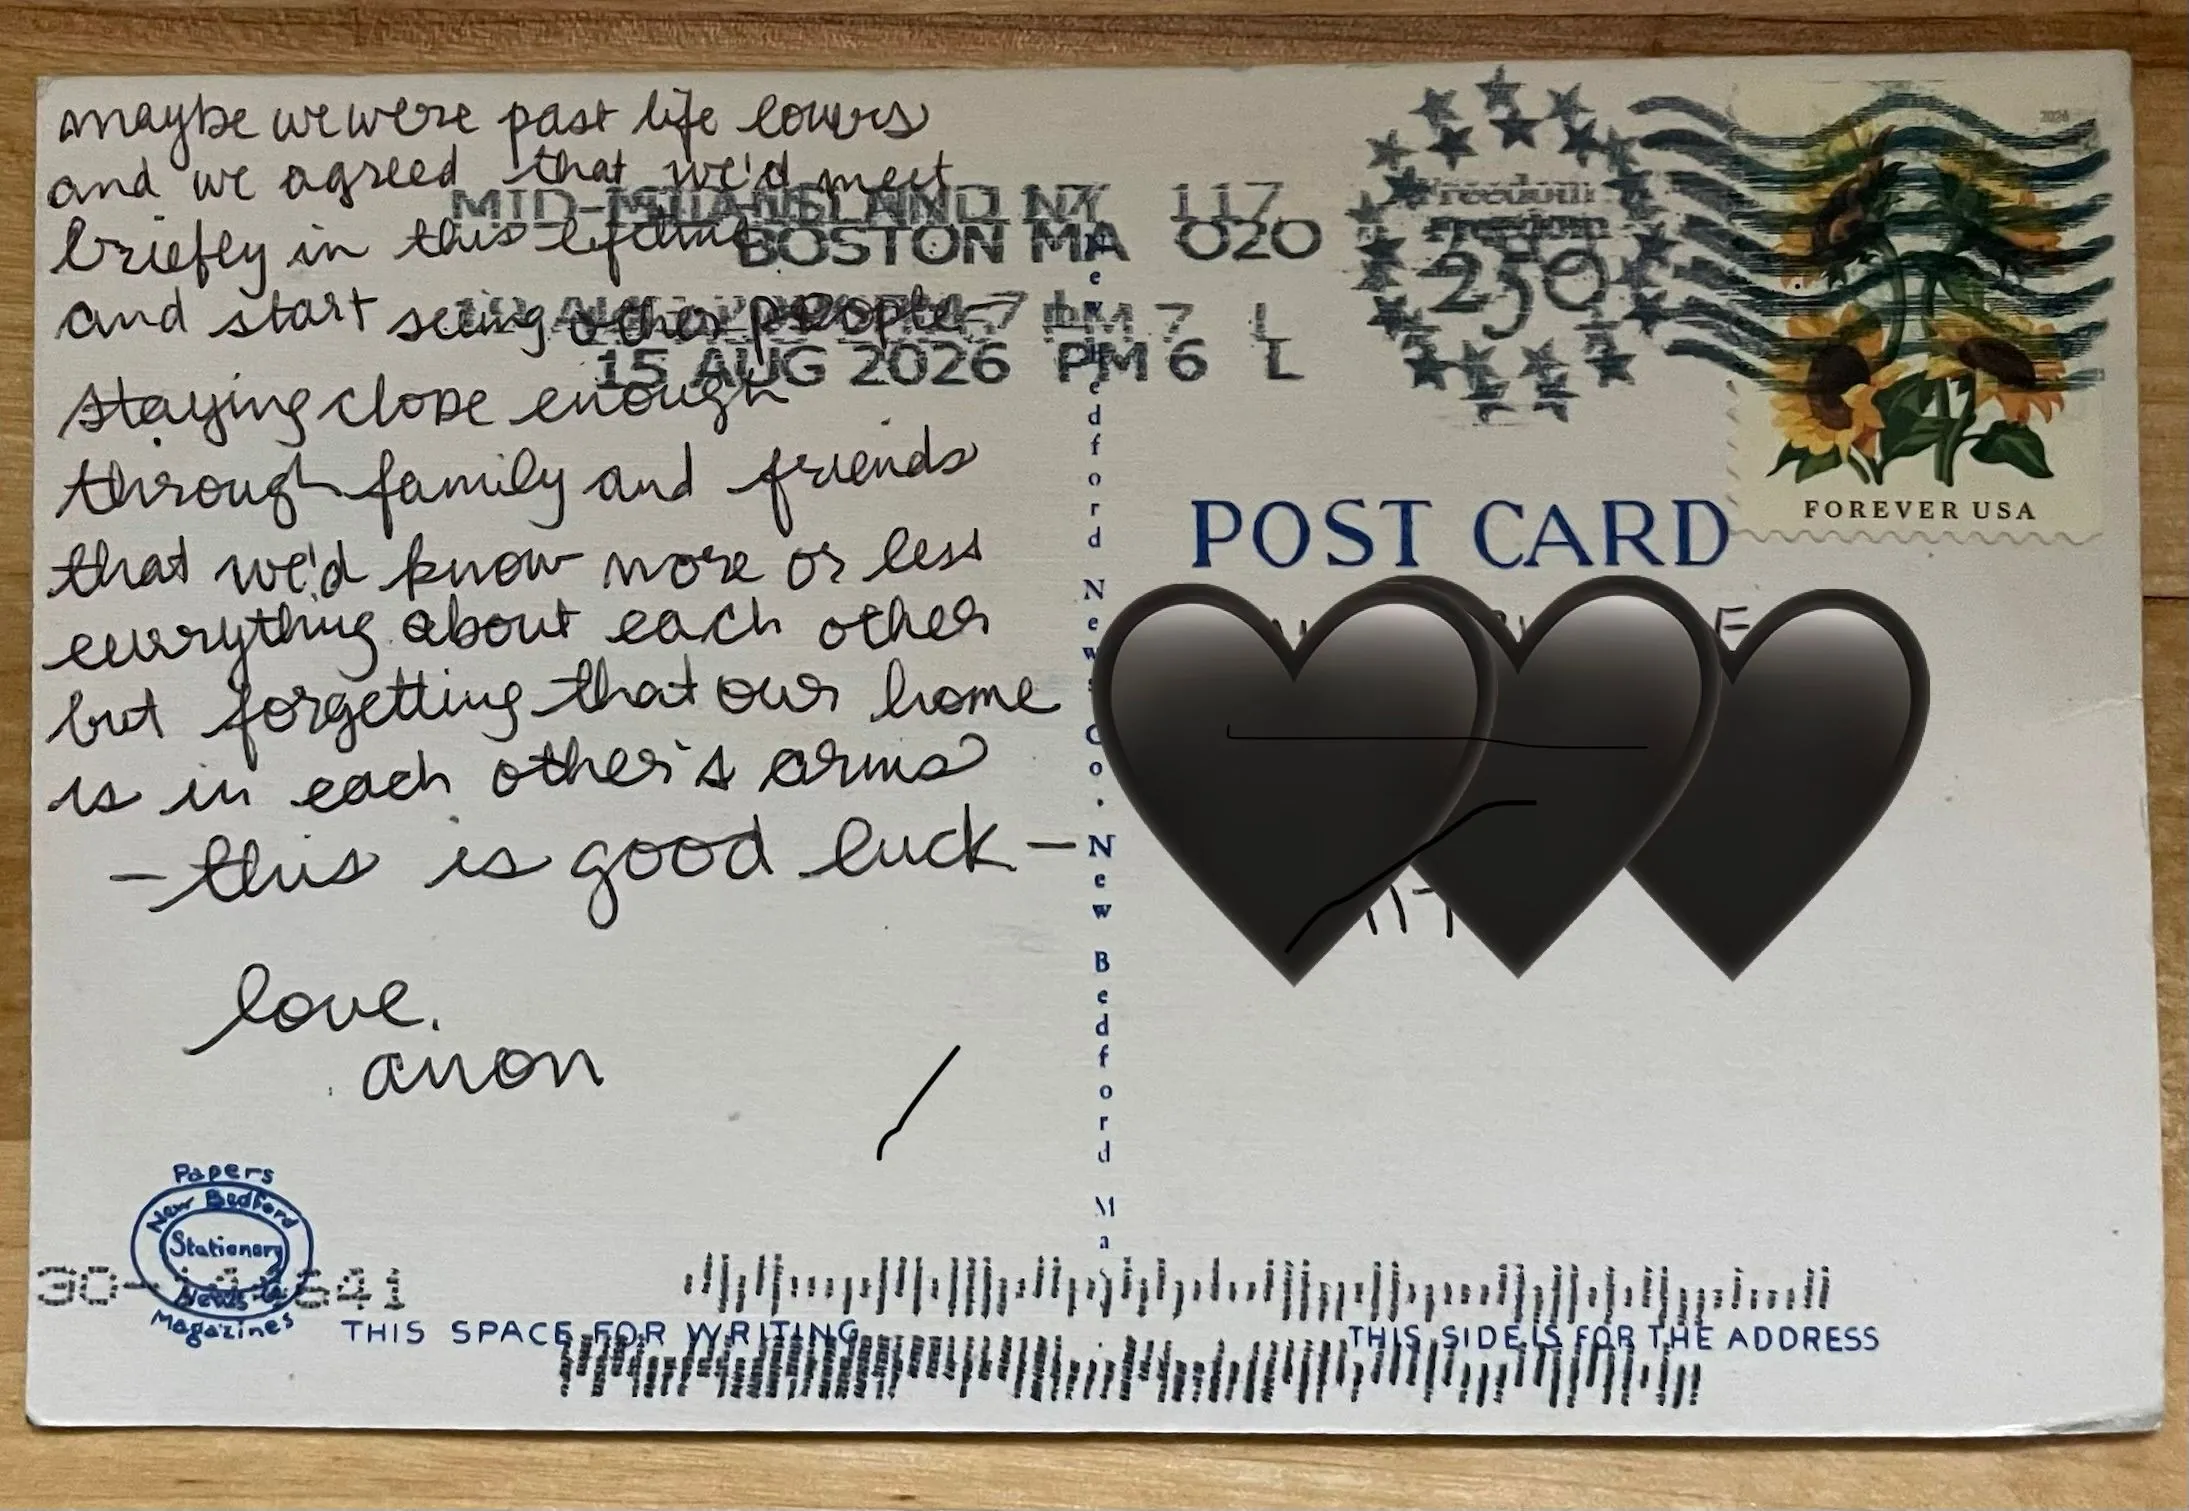 maybe we were past life lovers
and we agreed that we'd meet
briefly in this lifetime
and start seeing other people -
staying close enough
through family and friends
that we'd know more or less
everything about each other
but forgetting that our home
is in each other's arms
- this is good luck -
love,
anon
Papers
New Bedford
Stationary
News &
Magazines
THIS SPACE FOR WRITING
New Bedford News Co. New Bedford Ma
MID-ISLAND NY 117
BOSTON MA 020
PM 7 L
15 AUG 2026 PM 6 L
Freedom
250
2026
FOREVER USA
POST CARD
117
THIS SIDE IS FOR THE ADDRESS